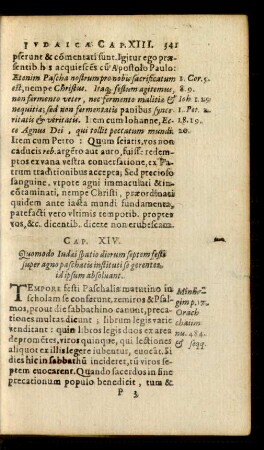 IVDAICÆ CAP. XIII. 341
pserunt & cōmentati sunt. Igitur ego præ-
sentib. his acquiescēs cū Apostolo Paulo:
Etenim Pascha nostrum pro nobis sacrificatum 1. Cor. 5.
est, nempe Christus. Itaq; festum agitemus, 8. 9.
non fermento veter, nec fermento malitiæ & Ioh. 1. 29
nequitiæ, sed non fermentatis panibus sync- 1. Pet. 2.
ritatis & veritatis. Item cum Iohanne, Ec- 18. 19.
ce Agnus Dei, qui tollit peccatum mundi: 20.
Item cum Petro: Quum sciatis, vos non
caducis reb. argēto aut auro, fuisse redem-
ptos ex vana vestra conuersatione, ex Pa-
trum traditionibus accepta; Sed precioso
sanguine, vtpote agni immaculati & in-
cōtaminati, nempe Christi, præordinati
quidem ante iacta mundi fundamenta,
patefacti vero vltimis temporib. propter
vos, &c. dicentib. dicete non erubescam.
CAP. XIV.
Quomodo Iudæi spatio dierum septem festi
super agno paschatis instituti se gerentes,
id ipsum absoluant.
TEMPORE festi Paschalis matutino in Minha-
scholam se conferunt, zemiros & Psal- gim p. 17.
mos, prout die sabbathino canunt, præca- Orach
tiones multas dicunt: librum legis vatic- chaiim
unt: quin libros legis duos ex area nu. 484.
depromētes, viros quinque, qui lectiones & seqq.
aliquot ex illis legere iubentur, euocāt. Si
dies hic in sabbathū inciderit, tū viros se-
ptem euocarent. Quando sacerdos in fine
precationum populo benedicit, tum &
P 3